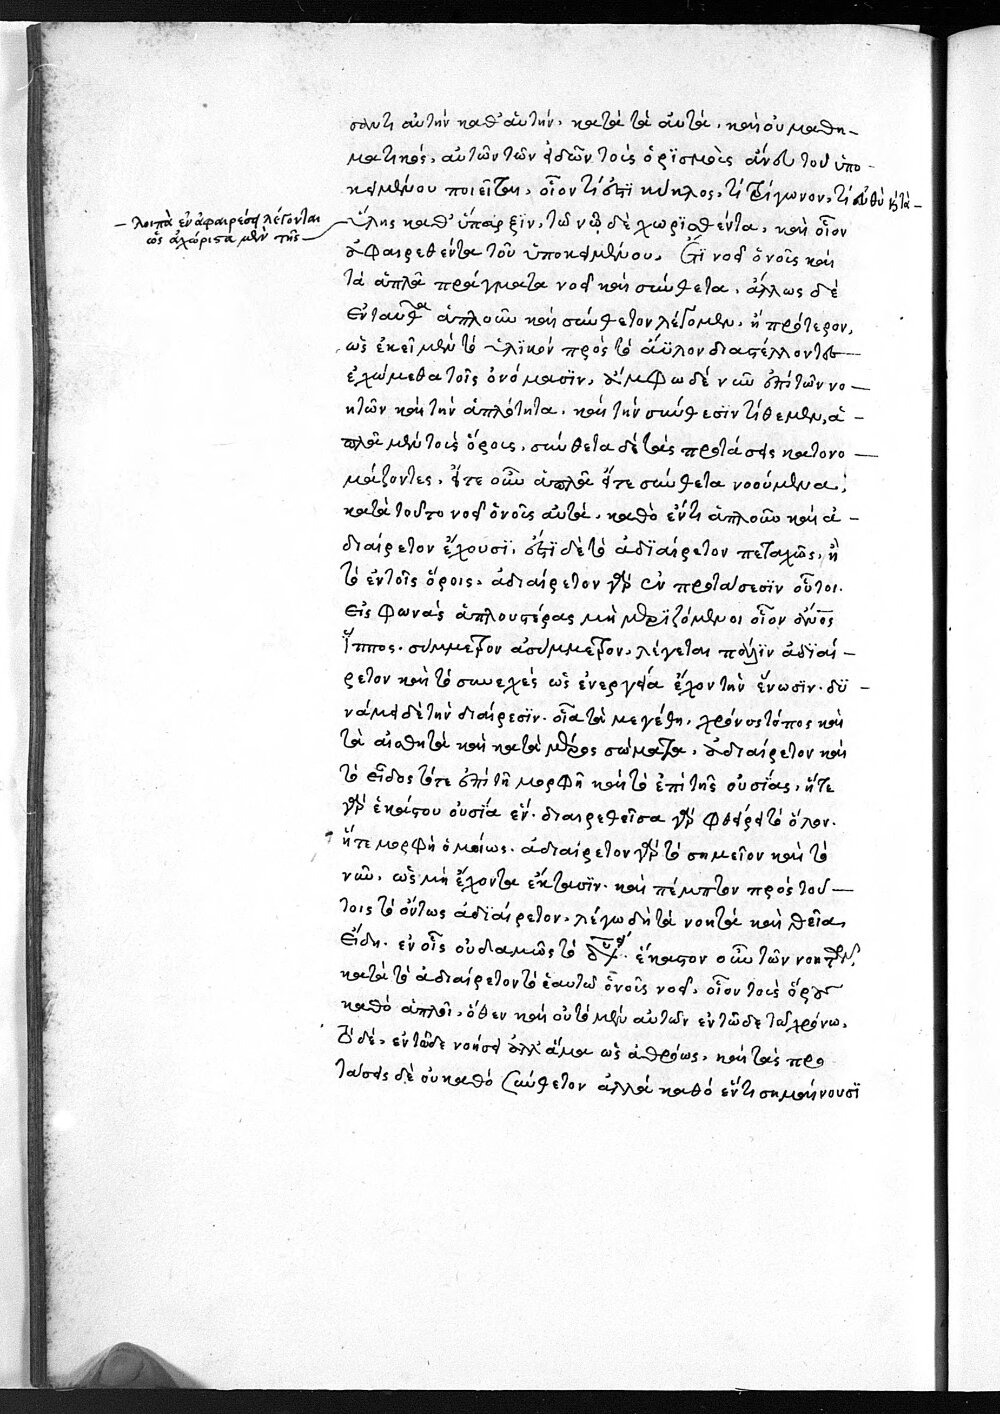 σαντι αὐτὴν καθ' αὑτήν, κατὰ τὰ αὐτὰ, καὶ ὁ μαθη-
ματικός, αὐτῶν τῶν εἰδῶν τοὺς ὁρισμοὺς ἄνευ τοῦ ὑπο-
κειμένου ποιεῖται, οἷον τί ἐστι κύκλος, τί τρίγωνον, τί εὐθύ καὶ τὰ
λοιπὰ ἐν ἀφαιρέσει λέγονται
ὡς ἀχώριστα μὲν τῆς
ὕλης καθ' ὕπαρξιν, τῷ νῷ δὲ χωρισθέντα, καὶ οἷον
ἀφαιρεθέντα τοῦ ὑποκειμένου. Ὅτι νοεῖ ὁ νοῦς καὶ
τὰ ἁπλᾶ πράγματα νοεῖ καὶ σύνθετα, ἄλλως δὲ
ἐνταῦθα ἁπλοῦν καὶ σύνθετον λέγομεν, ἢ πρότερον,
ὡς ἐκεῖ μὲν τὸ ὑλικὸν πρὸς τὸ ἄϋλον διαστέλλοντες
ἐχρώμεθα τοῖς ὀνόμασιν, ἄμφω δὲ νῦν ἐπὶ τῶν νο-
ητῶν καὶ τὴν ἁπλότητα, καὶ τὴν σύνθεσιν τίθεμεν, ἁ-
πλᾶ μὲν τοὺς ὅρους, σύνθετα δὲ τὰς προτάσεις κατονο-
μάζοντες, εἴτε οὖν ἁπλᾶ εἴτε σύνθετα νοούμενα,
κατὰ τοῦτο νοεῖ ὁ νοῦς αὐτὰ, καθὸ ἕν τι ἁπλοῦν καὶ ἀ-
διαίρετον ἔχουσι, ἔστι δὲ τὸ ἀδιαίρετον πενταχῶς, ἢ
τὸ ἐν τοῖς ὅροις, ἀδιαίρετον γὰρ ἐν προτάσεσιν οὗτοι.
εἰς φωνὰς ἁπλουστέρας μὴ μεριζόμενοι οἷον ἄνθρωπος
ἵππος. σύμμετρον ἀσύμμετρον, λέγεται πάλιν ἀδιαί-
ρετον καὶ τὸ συνεχὲς ὡς ἐνεργείᾳ ἔχον τὴν ἕνωσιν. δυ-
νάμει δὲ τὴν διαίρεσιν. οἷα τὰ μεγέθη, χρόνος τόπος καὶ
τὰ αἰσθητὰ καὶ κατὰ μέρος σώματα, ἀδιαίρετον καὶ
τὸ εἶδος τότε ἐπὶ τῇ μορφῇ καὶ τὸ ἐπὶ τῆς οὐσίας, ἥτε
γὰρ ἑκάστου οὐσία ἕν. διαιρεθεῖσα γὰρ φθείρει τὸ ὅλον.
ἥτε μορφὴ ὁμοίως. ἀδιαίρετον γὰρ τὸ σημεῖον καὶ τὸ
νῦν, ὡς μὴ ἔχοντα ἔκτασιν. καὶ πέμπτον πρὸς τού-
τοις τὸ ὄντως ἀδιαίρετον, λέγω δὴ τὰ νοητὰ καὶ θεῖα
εἴδη. ἐν οἷς οὐδαμῶς τὸ δυνάμει. ἕκαστον οὖν τῶν νοητῶν,
κατὰ τὸ ἀδιαίρετον τὸ ἑαυτοῦ ὁ νοῦς νοεῖ, οἷον τοὺς ὅρους
καθὸ ἁπλοῖ, ὅθεν καὶ οὐ τὸ μὲν αὐτῶν ἐν τῷδε τῷ χρόνῳ,
τὸ δὲ, ἐν τῷδε νοήσει ἀλλ' ἅμα ὡς ἀθρόως, καὶ τὰς προ
τάσεις δὲ οὐ καθὸ σύνθετον ἀλλὰ καθὸ ἕν τι σημαίνουσι